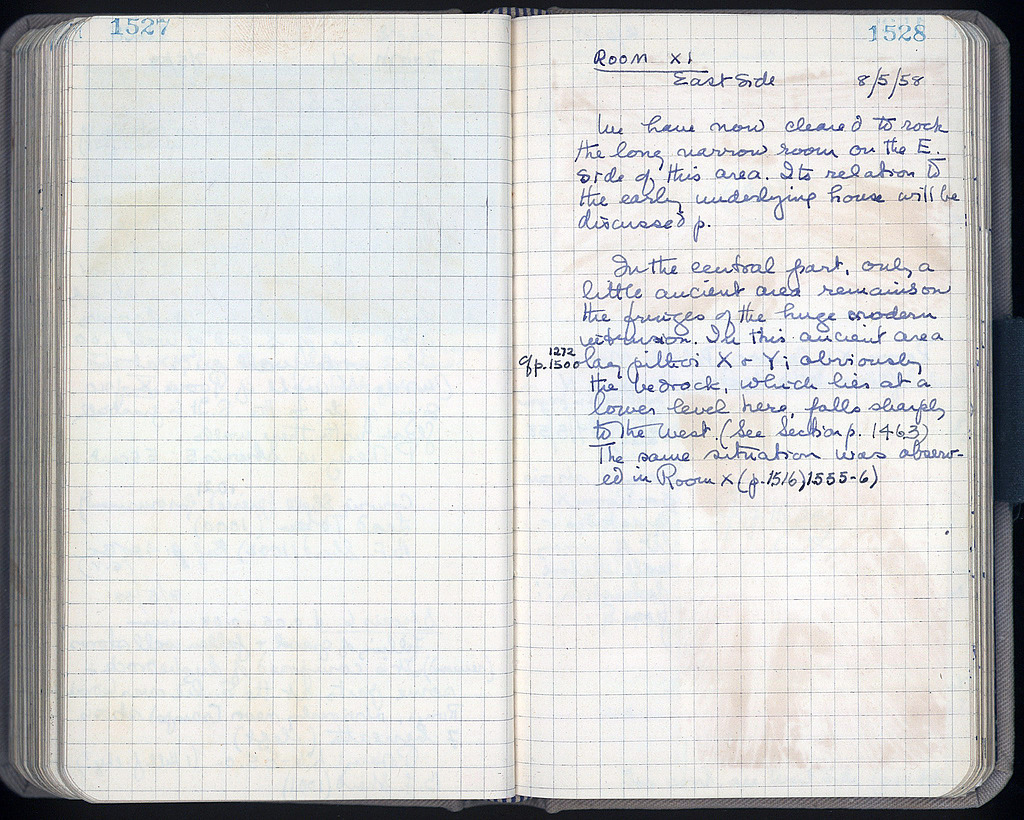 1527
1528
Room XI
East Side 8/5/58
We have now cleared to rock
the long narrow room on the E.
side of this area. Its relation to
the early underlying house will be
discussed p.
In the central part, only a
little ancient area remains on
the fringes of the huge modern
intrusion. In this ancient area
1272
cf p. 1500 lay pithoi X + Y; obviously
the bedrock, which lies at a
lower level here, falls sharply
to the west. (See Section p. 1463)
The same situation was observ-
ed in Room X (p. 1516) 1555-6)